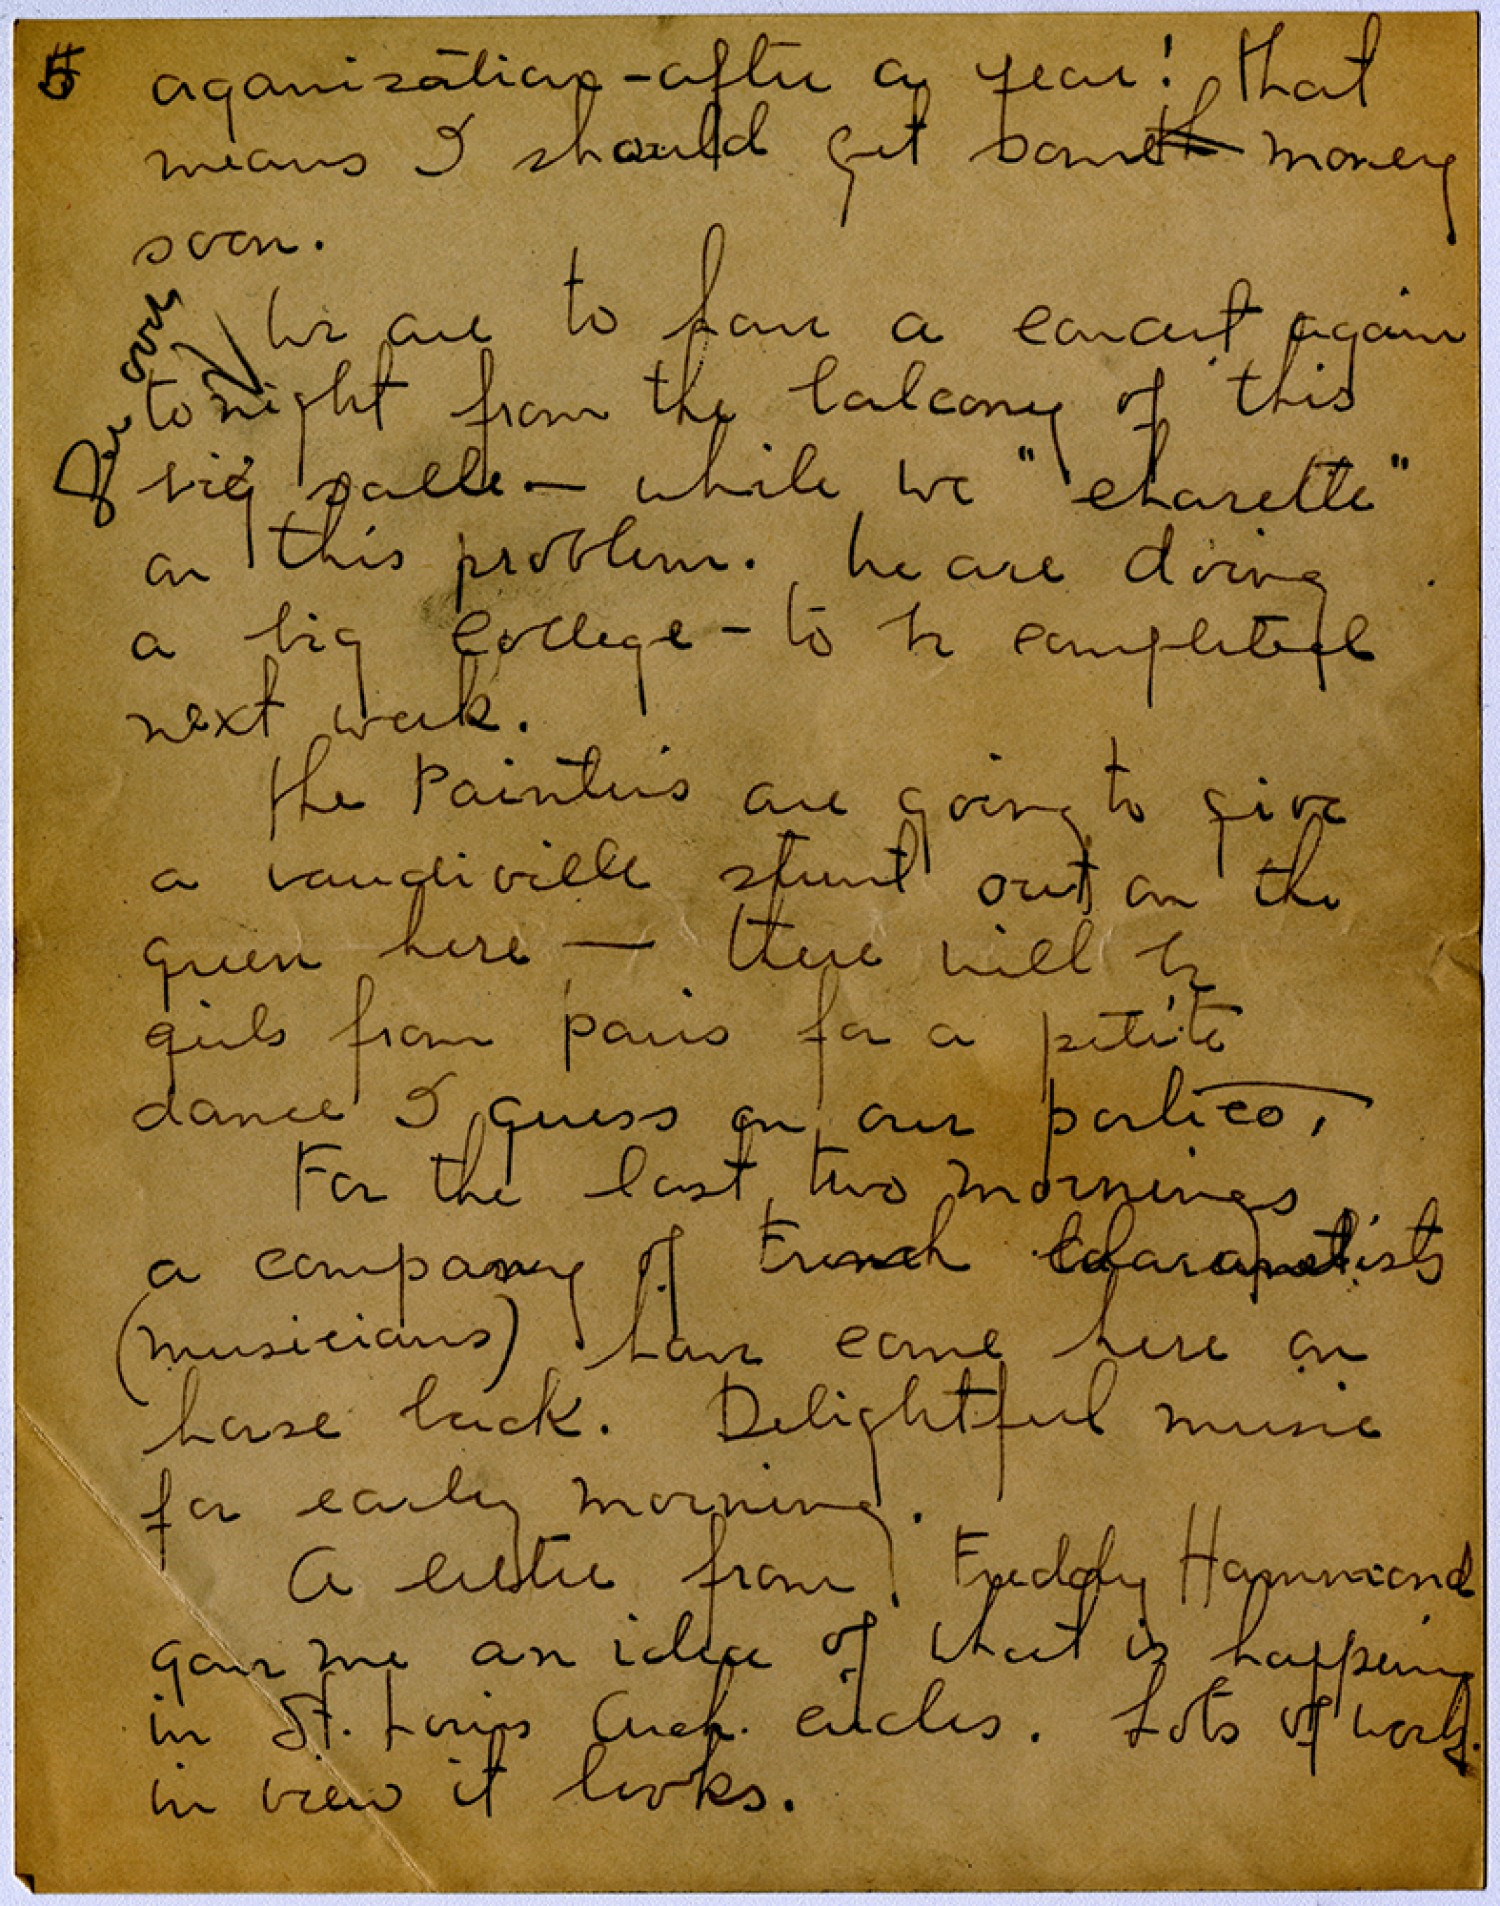 5
organization - after a year! that
means I should get some money
soon.
See over
We are to have a concert again
tonight from the balcony of this
big salle - while we "charette"
on this problem. We are doing
a big college - to be completed
next week.
The Painters are going to give
a vaudiville stunt out on the
green here — there will be
girls from Paris for a petite
dance I guess on our portico.
For the last two mornings
a company of French
(musicians) have come here on
horse back. Delightful music
for early morning.
A letter from Freddy Hammond
gave me an idea of what is happening
in St. Louis Arch. circles. Lots of work
in view it looks.